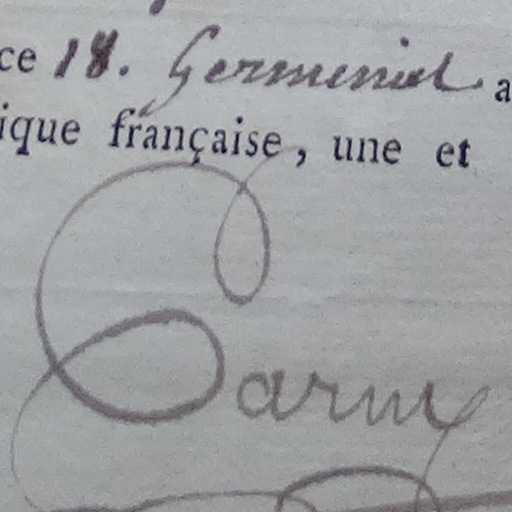 ce 18. Germinal a
ique française, une et
Carny